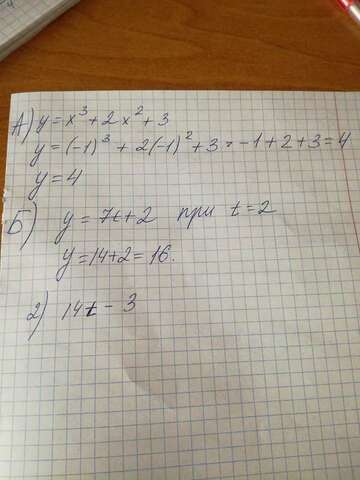 А) y = x³ + 2x² + 3
y = (-1)³ + 2(-1)² + 3 = -1 + 2 + 3 = 4
y = 4
Б) y = 7t + 2 при t = 2
y = 14 + 2 = 16.
2) 14t - 3